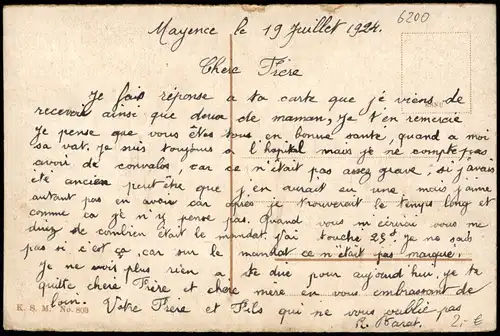 Mayence le 19 Juillet 1924.
6200
Chere Frère
Je fais réponse a ta carte que je viens de
recevoir ainsi que deux de maman, Je t'en remercie
Je pense que vous êtes tous en bonne santé, quand a moi
sa vat. je suis toujours a l'hopital mais je ne compte pas
avoir de convalos, car ce n'était pas assez grave; si j'avais
été ancien peut être que j'en aurait eu une mais j'aime
autant pas en avoir car après je trouverait le temps long et
comme ça je n'y pense pas. Quand vous m'écrirai vous me
direz de combien était le mandat. J'ai touché 25f. Je ne sais
pas si c'est ça, car sur le mandat ce n'était pas marqué.
Je ne vois plus rien a te dire pour aujourd'hui, je te
quitte chere Frère et chère mère en vous embrassant de
loin. Votre Frère et Fils qui ne vous oublie pas
K. S. M. No. 800
R. Barat.
2.- €